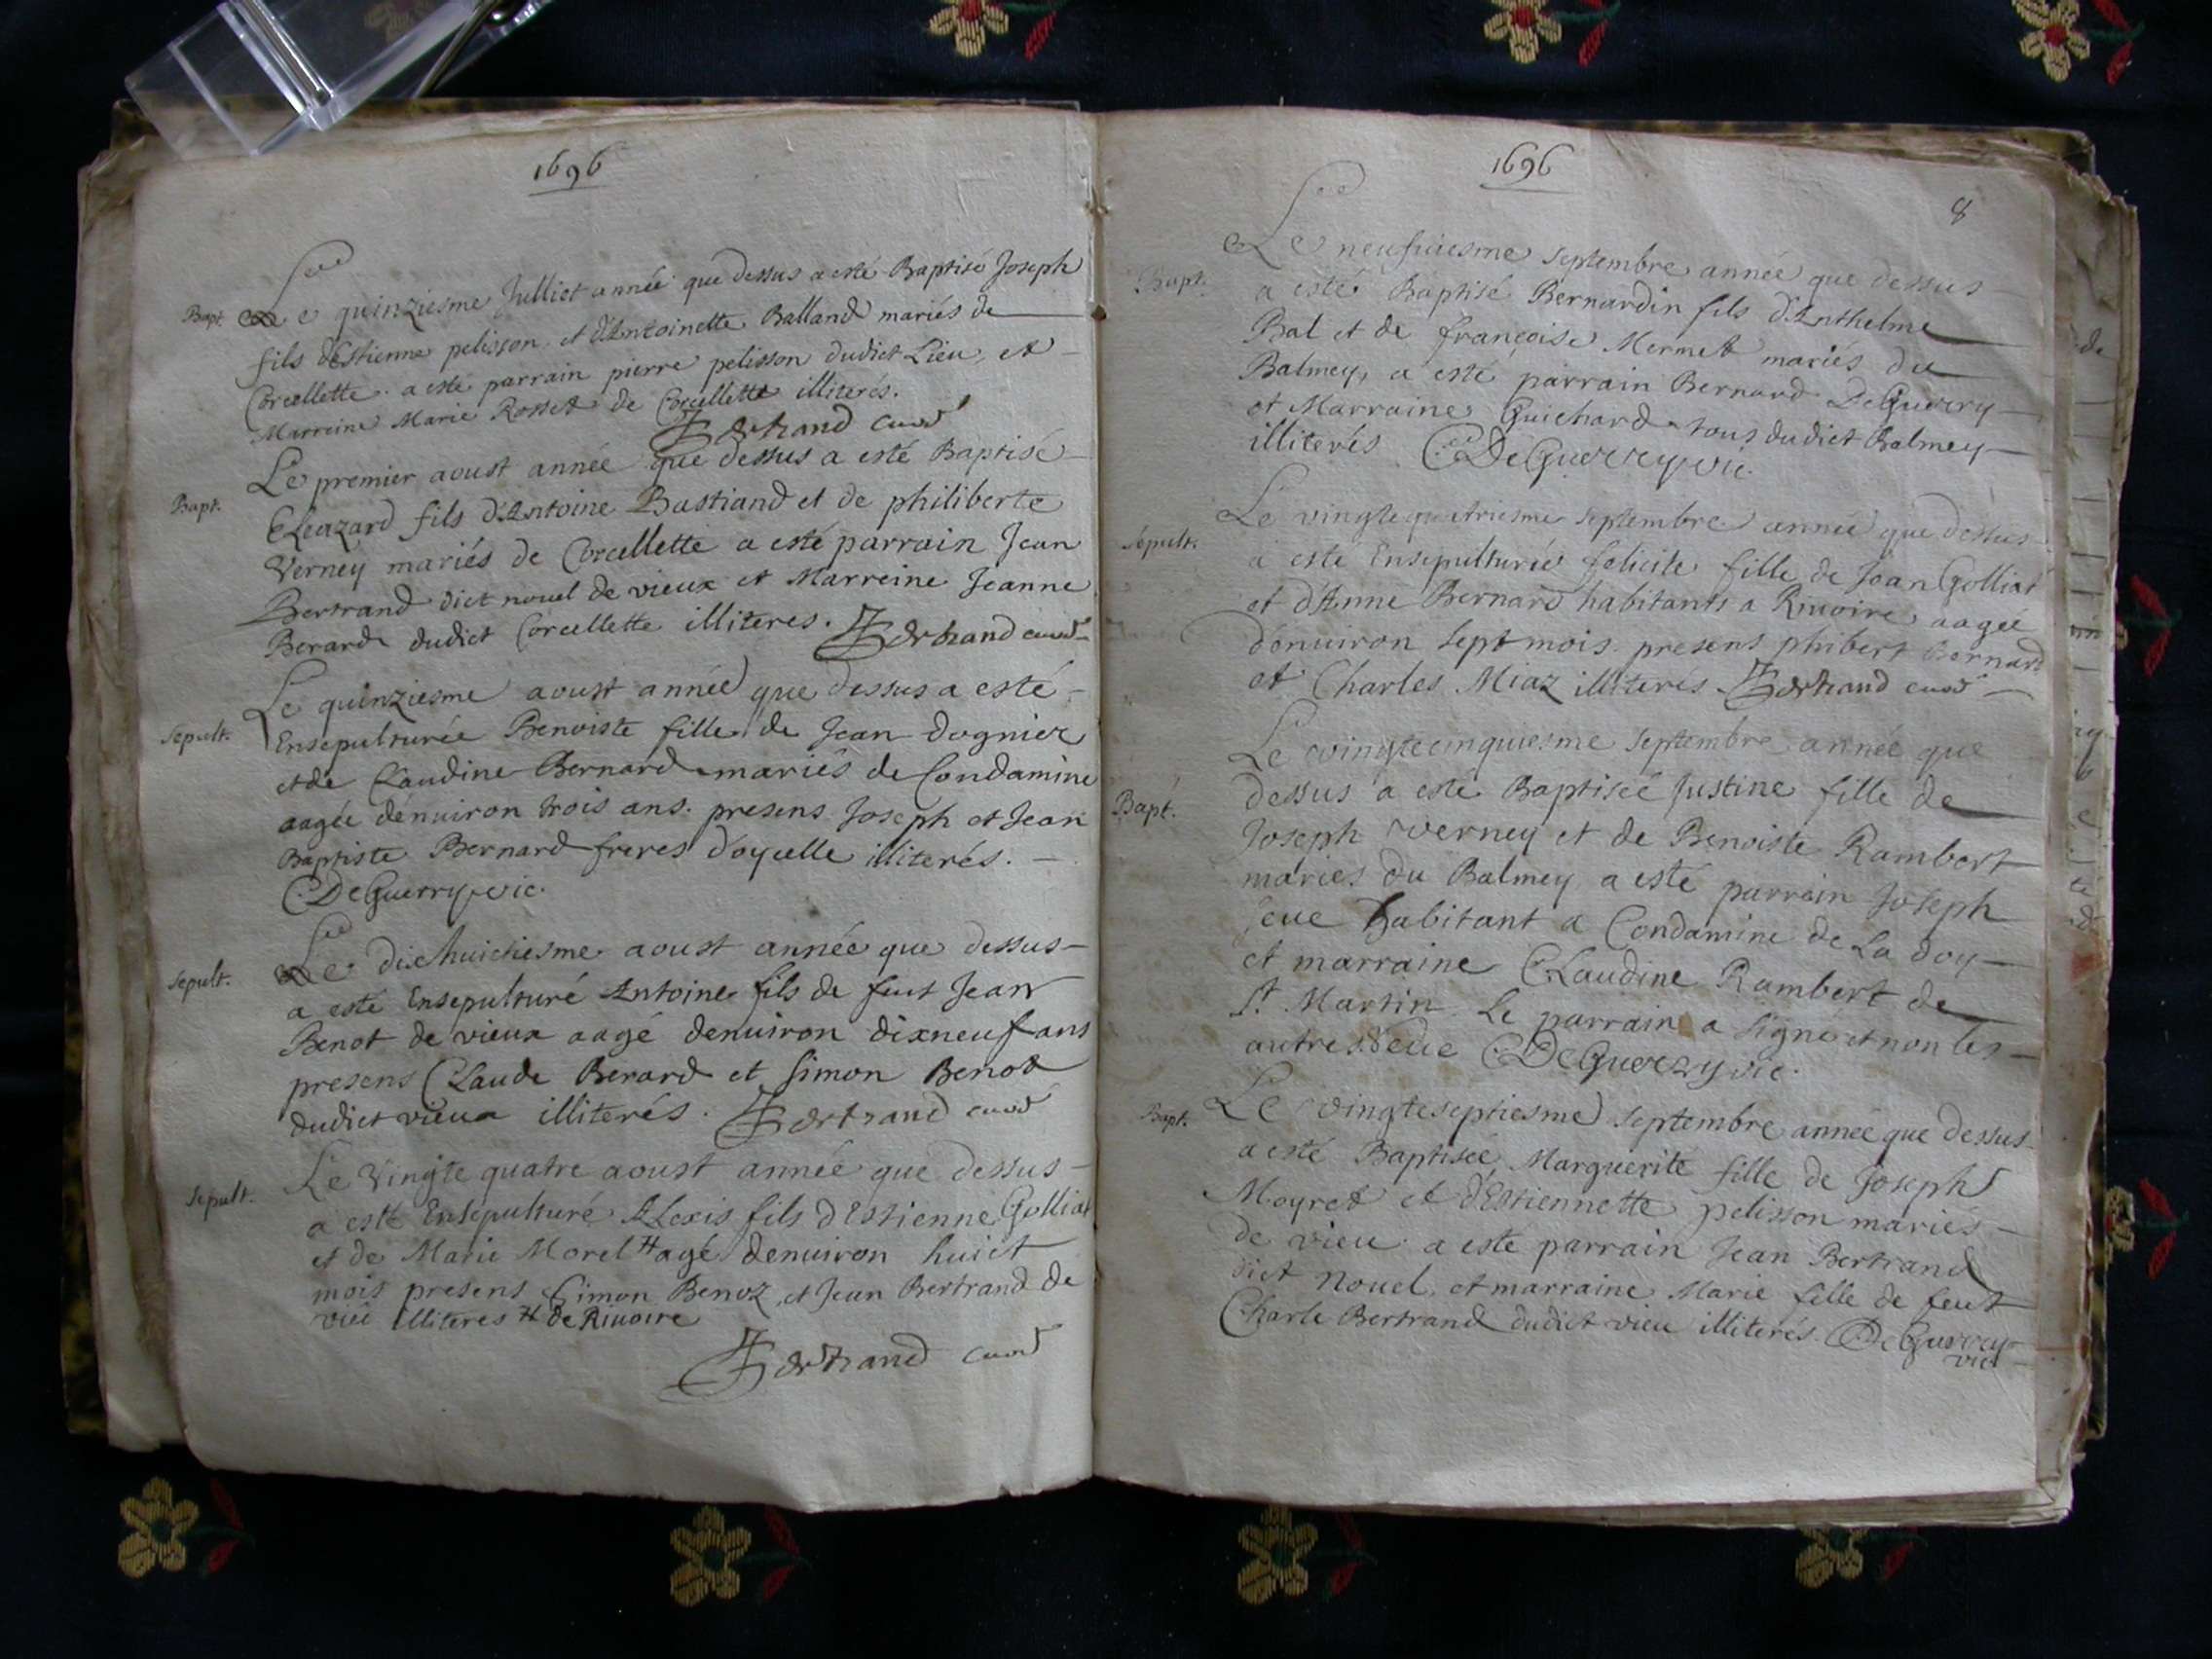 1696
Bapt. Le quinziesme Julliet année que dessus a esté Baptisé Joseph
fils d'Estienne pelisson et d'Antoinette Balland mariés de
Corcellette. a esté parrain pierre pelisson dudict Lieu, et
Marreine Marie Rosset de Corcellette illiterés.
Bertrand curé
Le premier aoust année que dessus a esté Baptisé
Bapt. Eleazard fils d'Antoine Bastiand et de philiberte
Verney mariés de Corcellette a esté parrain Jean
Bertrand dict nouel de vieux et Marreine Jeanne
Berard dudict Corcellette illiteres. Bertrand curé
Le quinziesme aoust année que dessus a esté
Sepult. Ensepulturée Benoiste fille de Jean dognier
et de Claudine Bernard mariés de Condamine
aagée denuiron trois ans. presens Joseph et Jean
Baptiste Bernard freres d'oycelle illiterés.
C. DeGuerry vic.
Sepult. Le dixhuictiesme aoust année que dessus
a esté Ensepulturé Antoine fils de feut Jean
Benot de vieux aagé denuiron dixneuf ans
presens Claude Berard et Simon Benot
dudict vieux illiterés. Bertrand curé
Le Vingte quatre aoust année que dessus
Sepult. a esté Ensepulturé Alexis fils d'Estienne Golliat
et de Marie Morel # agé denuiron huict
mois presens Simon Benoz et Jean Bertrand de
vieu illiteres # de Riuoire
Bertrand curé
1696
8
Le neufuiesme Septembre année que dessus
Bapt. a esté Baptisé Bernardin fils d'Anthelme
Bal et de françoise Mermet mariés du
Balmey, a esté parrain Bernard DeGuerry
et Marraine Guichard tous dudict Balmey
illiterés C. DeGuerry vic.
Le vingtequatriesme Septembre année que dessus
Sepult. a este Ensepulturée felicite fille de Jean Golliat
et d'Anne Bernard habitants a Riuoire aagée
denuiron Sept mois. presens phibert Bernard
et Charles Miaz illiteres. Bertrand curé
Le vingtecinquiesme Septembre année que
Bapt. dessus a esté Baptisée Justine fille de
Joseph verney et de Benoiste Rambert
mariés du Balmey a esté parrain Joseph
habitant a Condamine de La doy
et marraine Claudine Rambert de
St. Martin Le parrain a signé et non les
autres. C. DeGuerry vic.
Le vingteseptiesme Septembre année que dessus
Bapt. a esté Baptisée Marguerite fille de Joseph
Moyret et d'Estiennette pelisson mariés
de vieu a esté parrain Jean Bertrand
dict Nouel, et marraine Marie fille de feut
Charle Bertrand dudict vieu illiterés. C. DeGuerry
vic